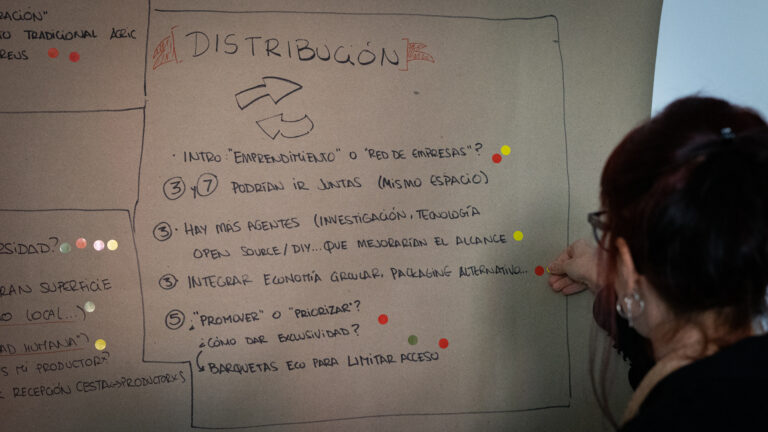 RACIÓN"
TO TRADICIONAL AGRIC
REUS
ERSIDAD?
RAN SUPERFICIE
O LOCAL...)
AD HUMANA")
S MI PRODUCTORX?
RECEPCIÓN CESTA PRODUCTORXS
DISTRIBUCIÓN
· INTRO: "EMPRENDIMIENTO" O "RED DE EMPRESAS"?
③ Y ⑦ PODRÍAN IR JUNTAS (MISMO ESPACIO)
③ · HAY MÁS AGENTES (INVESTIGACIÓN, TECNOLOGÍA
OPEN SOURCE/DIY... QUE MEJORARÍAN EL ALCANCE
③ INTEGRAR ECONOMÍA CIRCULAR, PACKAGING ALTERNATIVO...
⑤ ¿"PROMOVER" O "PRIORIZAR"?
¿CÓMO DAR EXCLUSIVIDAD?
BARQUETAS ECO PARA LIMITAR ACCESO